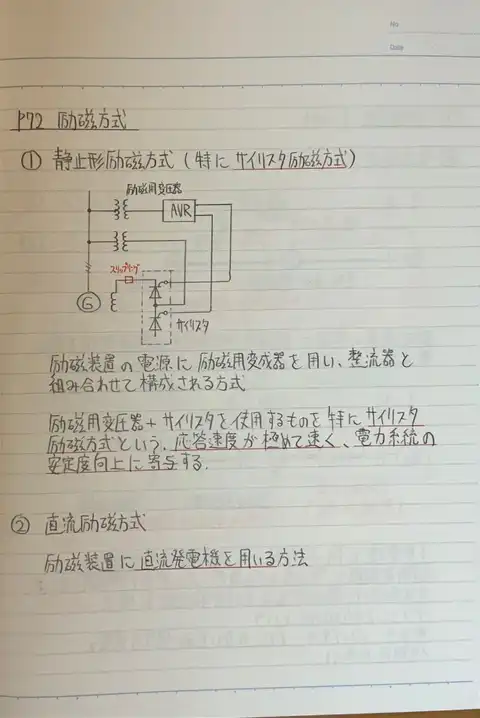 No
Date
P72 励磁方式
① 静止形励磁方式 (特に サイリスタ励磁方式)
励磁用変圧器
AVR
スリップリング
G
サイリスタ
励磁装置の電源に励磁用変成器を用い、整流器と
組み合わせて構成される方式
励磁用変圧器+サイリスタを使用するものを特にサイリスタ
励磁方式という。応答速度が極めて速く、電力系統の
安定度向上に寄与する。
② 直流励磁方式
励磁装置に直流発電機を用いる方法